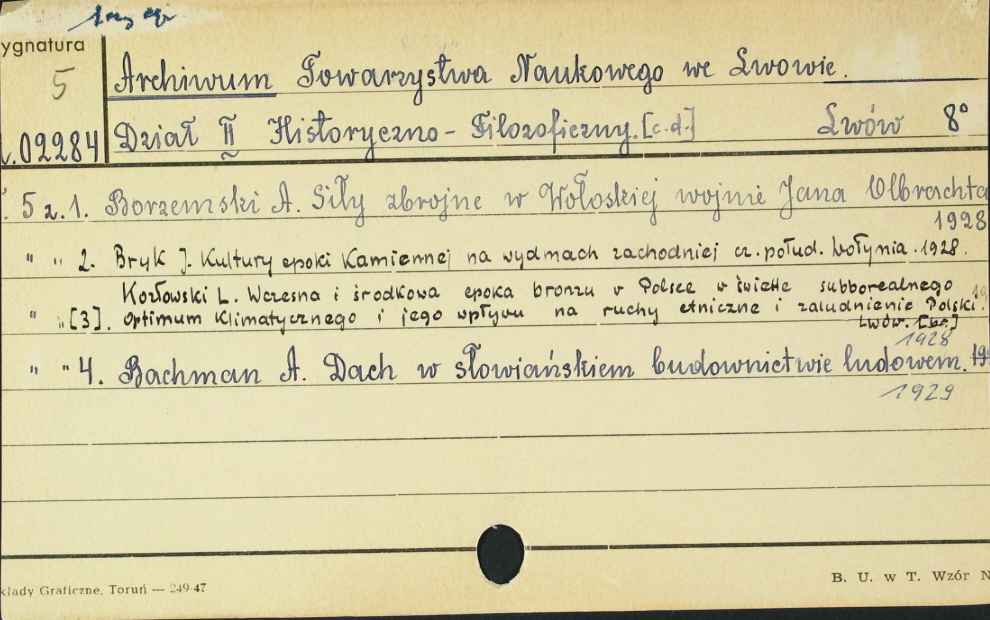 ygnatura
5
Archiwum Towarzystwa Naukowego we Lwowie.
02284 Dział II Historyczno-Filozoficzny. [c.d.] Lwów 8°
5 z. 1. Borzemski A. Siły zbrojne w Wołoskiej wojnie Jana Olbrachta
1928
" " 2. Bryk J. Kultury epoki Kamiennej na wydmach zachodniej cz. połud. Wołynia. 1928.
Kozłowski L. Wczesna i środkowa epoka bronzu v Polsce w świetle subborealnego
" " [3]. optimum klimatycznego i jego wpływu na ruchy etniczne i zaludnienie Polski.
Lwów.
1928
" " 4. Bachman A. Dach w słowiańskiem budownictwie ludowem.
1929
kłady Graficzne, Toruń — 249-47
B. U. w T. Wzór N